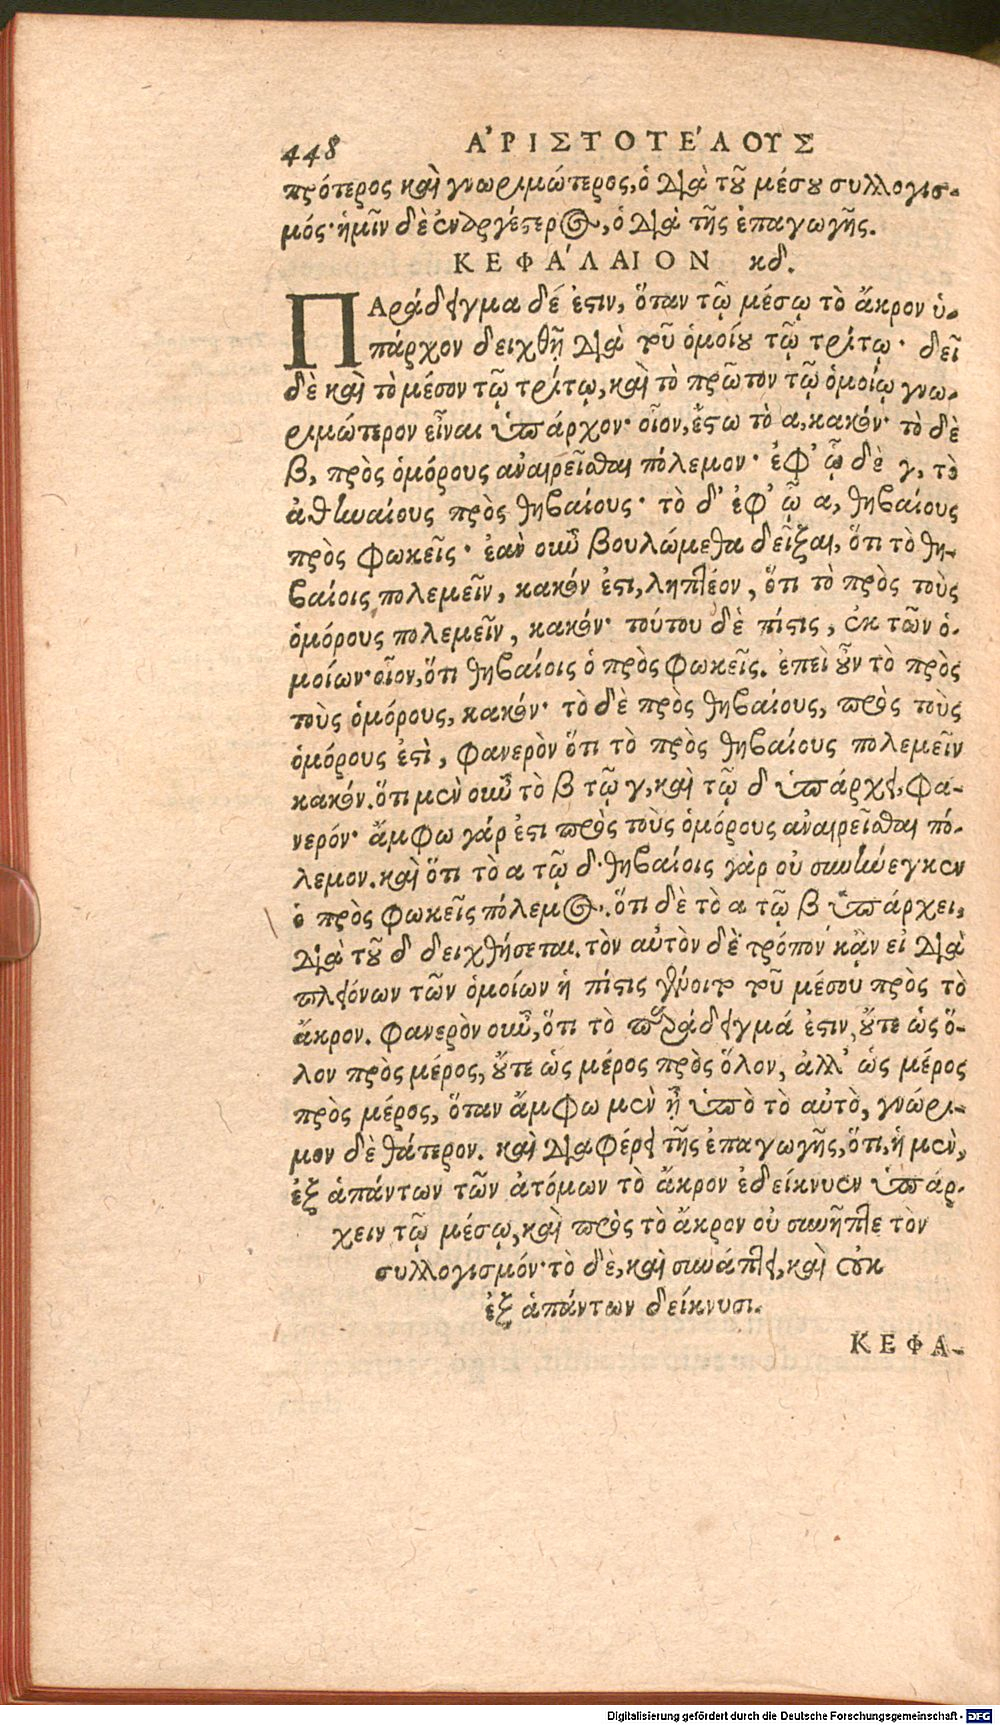 448 ἈΡΙΣΤΟΤΈΛΟΥΣ
πρότερος καὶ γνωριμώτερος, ὁ διὰ τοῦ μέσου συλλογισ-
μός· ἡμῖν δὲ ἐναργέστερος, ὁ διὰ τῆς ἐπαγωγῆς.
ΚΕΦΆΛΑΙΟΝ κδ.
ΠΑράδειγμα δέ ἐστιν, ὅταν τῷ μέσῳ τὸ ἄκρον ὑ-
πάρχον δειχθῇ διὰ τοῦ ὁμοίου τῷ τρίτῳ· δεῖ
δὲ καὶ τὸ μέσον τῷ τρίτῳ, καὶ τὸ πρῶτον τῷ ὁμοίῳ γνω-
ριμώτερον εἶναι ὑπάρχον· οἷον, ἔστω τὸ α, κακόν· τὸ δὲ
β, πρὸς ὁμόρους ἀναιρεῖσθαι πόλεμον· ἐφ' ᾧ δὲ γ, τὸ
ἀθηναίους πρὸς θηβαίους· τὸ δ' ἐφ' ᾧ α, θηβαίους
πρὸς φωκεῖς· ἐὰν οὖν βουλώμεθα δεῖξαι, ὅτι τὸ θη-
βαίοις πολεμεῖν, κακόν ἐστι, ληπτέον, ὅτι τὸ πρὸς τοὺς
ὁμόρους πολεμεῖν, κακόν· τούτου δὲ πίστις, ἐκ τῶν ὁ-
μοίων· οἷον, ὅτι θηβαίοις ὁ πρὸς φωκεῖς. ἐπεὶ οὖν τὸ πρὸς
τοὺς ὁμόρους, κακόν· τὸ δὲ πρὸς θηβαίους, πρὸς τοὺς
ὁμόρους ἐστὶ, φανερὸν ὅτι τὸ πρὸς θηβαίους πολεμεῖν
κακόν. ὅτι μὲν οὖν τὸ β τῷ γ, καὶ τῷ δ ὑπάρχει, φα-
νερόν· ἄμφω γάρ ἐστι πρὸς τοὺς ὁμόρους ἀναιρεῖσθαι πό-
λεμον. καὶ ὅτι τὸ α τῷ δ· θηβαίοις γὰρ οὐ συνήνεγκεν
ὁ πρὸς φωκεῖς πόλεμος. ὅτι δὲ τὸ α τῷ β ὑπάρχει,
διὰ τοῦ δ δειχθήσεται. τὸν αὐτὸν δὲ τρόπον κἂν εἰ διὰ
πλειόνων τῶν ὁμοίων ἡ πίστις γένοιτο τοῦ μέσου πρὸς τὸ
ἄκρον. φανερὸν οὖν, ὅτι τὸ παράδειγμά ἐστιν, οὔτε ὡς ὅ-
λον πρὸς μέρος, οὔτε ὡς μέρος πρὸς ὅλον, ἀλλ' ὡς μέρος
πρὸς μέρος, ὅταν ἄμφω μὲν ᾖ ὑπὸ τὸ αὐτὸ, γνώρι-
μον δὲ θάτερον. καὶ διαφέρει τῆς ἐπαγωγῆς, ὅτι, ἡ μὲν,
ἐξ ἁπάντων τῶν ἀτόμων τὸ ἄκρον ἐδείκνυεν ὑπάρ-
χειν τῷ μέσῳ, καὶ πρὸς τὸ ἄκρον οὐ συνῆπτε τὸν
συλλογισμόν· τὸ δὲ, καὶ συνάπτει, καὶ οὐκ
ἐξ ἁπάντων δείκνυσι.
ΚΕΦΑ-
Digitalisierung gefördert durch die Deutsche Forschungsgemeinschaft - DFG